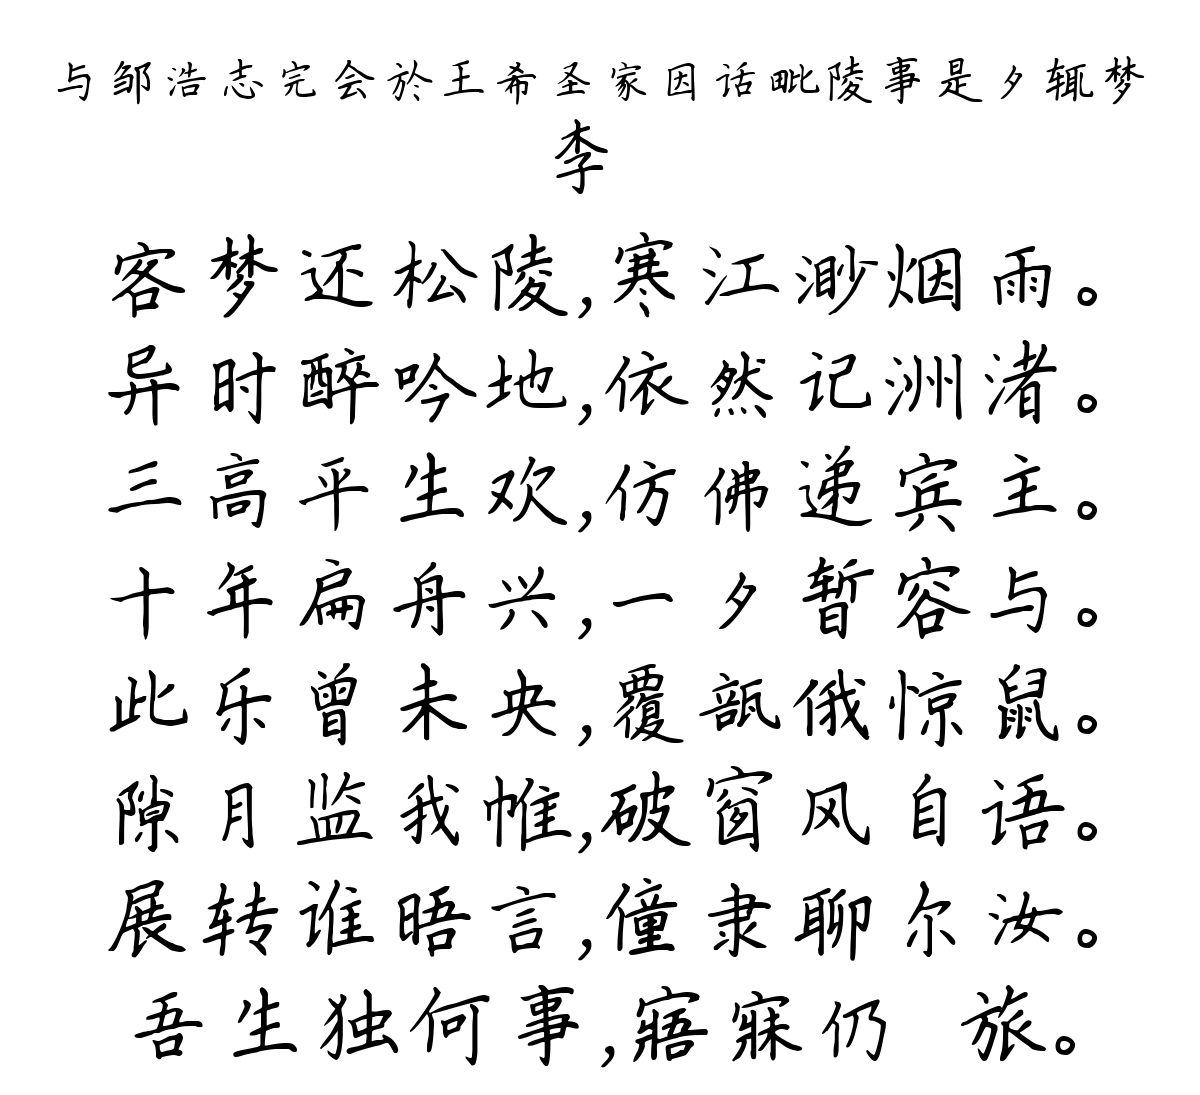 与邹浩志完会於王希圣家因话毗陵事是夕辄梦
李
客梦还松陵,寒江渺烟雨。
异时醉吟地,依然记洲渚。
三高平生欢,仿佛递宾主。
十年扁舟兴,一夕暂容与。
此乐曾未央,覆瓿俄惊鼠。
隙月监我帷,破窗风自语。
展转谁晤言,僮隶聊尔汝。
吾生独何事,寤寐仍 旅。